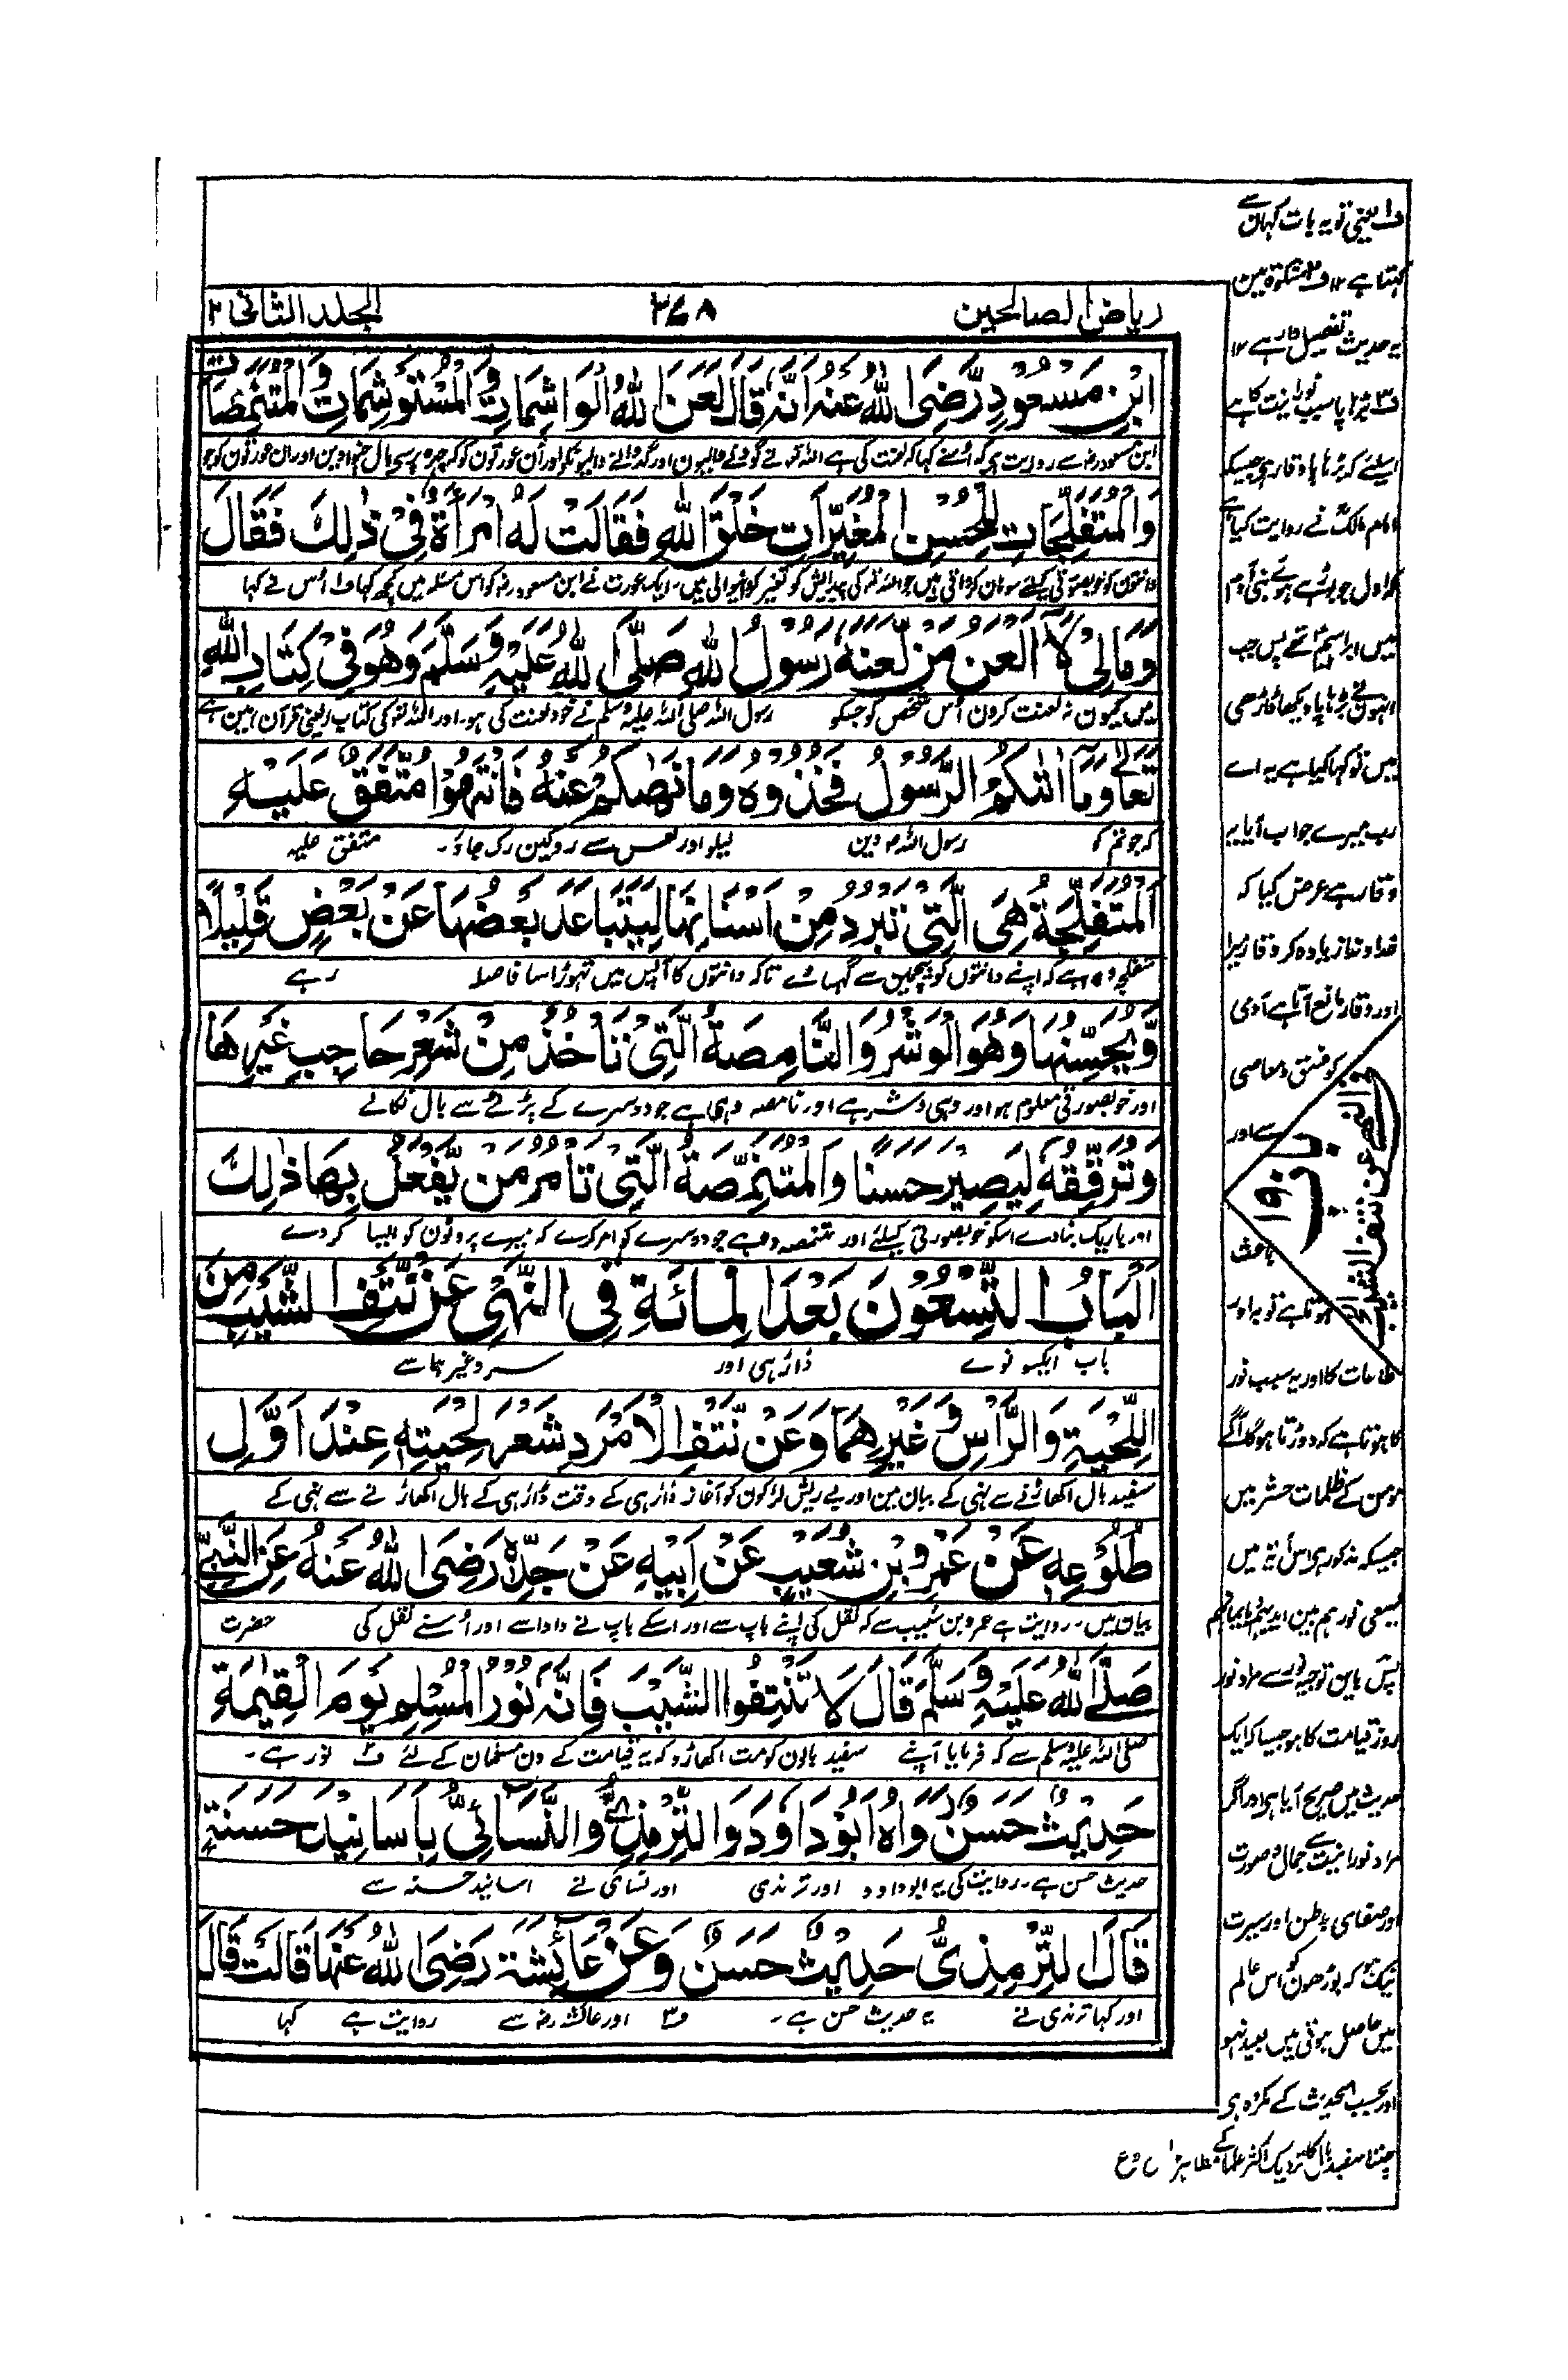 ریاض الصالحین ۳۷۸ الجلد الثانی ۲
ابْنِ مَسْعُوْدٍ رَّضِیَ اللّٰهُ عَنْهُ اَنَّهٗ قَالَ لَعَنَ اللّٰهُ الْوَاشِمَاتِ وَالْمُسْتَوْشِمَاتِ وَالْمُتَنَمِّصَاتِ
ابن مسعود رضہ سے روایت ہے کہ اُسنے کہا کہ لعنت کی ہے اللہ تعہ نے گودنے والیوں اور گدوانے والیونکو اور اُن عورتوں کو کہ چہرہ پر سے بال چنوادیں اور ان عورتوں کو جو
وَالْمُتَفَلِّجَاتِ لِلْحُسْنِ الْمُغَيِّرَاتِ خَلْقَ اللّٰهِ فَقَالَتْ لَهُ امْرَأَةٌ فِیْ ذٰلِكَ فَقَالَ
دانتوں کو خوبصورتی کیلئے سوہان کرواتی ہیں جو اللہ تعہ کی پیدایش کو تغیر کرنیوالی ہیں۔ ایک عورت نے ابن مسعود رضہ کو اس مسئلہ میں کچھ کہا ف۱ اُس نے کہا
وَمَالِیْ لَا اَلْعَنُ مَنْ لَّعَنَهٗ رَسُوْلُ اللّٰهِ صَلَّی اللّٰهُ عَلَيْهِ وَسَلَّمَ وَهُوَ فِیْ كِتَابِ اللّٰهِ
میں کیوں نہ لعنت کروں اُس شخص کو جسکو رسول اللہ صلی اللہ علیہ وسلم نے خود لعنت کی ہو۔ اور اللہ تعہ کی کتاب یعنی قرآن میں ہے
تَعَالٰی وَمَا اٰتٰىكُمُ الرَّسُوْلُ فَخُذُوْهُ وَمَا نَهٰىكُمْ عَنْهُ فَانْتَهُوْا مُتَّفَقٌ عَلَيْهِ
کہ جو تم کو رسول اللہ ص دیں لیلو اور جس سے روکیں رک جاؤ۔ متفق علیہ
اَلْمُتَفَلِّجَةُ هِیَ الَّتِیْ تَبْرُدُ مِنْ اَسْنَانِهَا لِيَتَبَاعَدَ بَعْضُهَا عَنْ بَعْضٍ قَلِيْلًا
متفلجہ وہ ہے کہ اپنے دانتوں کو بیچمیں سے گہسائے تاکہ دانتوں کا آپس میں تہوڑا سا فاصلہ رہے
وَّيُحَسِّنَهَا وَهُوَ الْوَشْرُ وَالنَّامِصَةُ الَّتِیْ تَأْخُذُ مِنْ شَعْرِ حَاجِبِ غَيْرِهَا
اور خوبصورتی معلوم ہو اور وہی وشر ہے اور نامصہ وہی ہے جو دوسرے کے بڑنے سے بال نکالے
وَتُرَقِّقُهٗ لِيَصِيْرَ حَسَنًا وَالْمُتَنَمِّصَةُ الَّتِیْ تَأْمُرُ مَنْ يَّفْعَلُ بِهَا ذٰلِكَ
اور باریک بنادے اسکو خوبصورتی کیلئے اور متنمصہ وہ ہے جو دوسرے کو امر کرے کہ میرے پرونوں کو ایسا کردے
اَلْبَابُ التِّسْعُوْنَ بَعْدَ الْمِائَةِ فِی النَّهْیِ عَنْ نَّتْفِ الشَّيْبِ مِنَ
باب ایکسو نوے ڈاڑہی اور سر وغیرہما سے
اللِّحْيَةِ وَالرَّأْسِ وَغَيْرِهِمَا وَعَنْ نَّتْفِ الْاَمْرَدِ شَعْرَ لِحْيَتِهٖ عِنْدَ اَوَّلِ
سفید بال اکھاڑنے سے نہی کے بیان میں اور بے ریش لڑکوں کو آغاز ڈاڑہی کے وقت ڈاڑہی کے بال اکھاڑنے سے نہی کے
طُلُوْعِهٖ عَنْ عَمْرِو بْنِ شُعَيْبٍ عَنْ اَبِيْهِ عَنْ جَدِّهٖ رَضِیَ اللّٰهُ عَنْهُ عَنِ النَّبِیِّ
بیان میں۔ روایت ہے عمرو بن شعیب سے کہ نقل کی اپنے باپ سے اور اسکے باپ نے دادا سے اور اُسنے نقل کی حضرت
صَلَّی اللّٰهُ عَلَيْهِ وَسَلَّمَ قَالَ لَا تَنْتِفُوا الشَّيْبَ فَاِنَّهٗ نُوْرُ الْمُسْلِمِ يَوْمَ الْقِيٰمَةِ
صلی اللہ علیہ وسلم سے کہ فرمایا آپنے سفید بالوں کو مت اکھاڑو کہ یہ قیامت کے دن مسلمان کے لئے ف۲ نور ہے۔
حَدِيْثٌ حَسَنٌ رَوَاهُ اَبُوْ دَاوٗدَ وَالتِّرْمِذِیُّ وَالنَّسَائِیُّ بِاَسَانِيْدَ حَسَنَةٍ
حدیث حسن ہے۔ روایت کی یہ ابو داود اور ترمذی اور نسائی نے اسانید حسنہ سے
قَالَ التِّرْمِذِیُّ حَدِيْثٌ حَسَنٌ وَعَنْ عَائِشَةَ رَضِیَ اللّٰهُ عَنْهَا قَالَتْ قَالَ
اور کہا ترمذی نے یہ حدیث حسن ہے۔ ف۳ اور عائشہ رضہ سے روایت ہے کہا
ف۱ یعنی تو یہ بات کہاں سے
کہتا ہے ۱۲ ف۲ مشکوٰۃ میں
یہ حدیث تفصیل وار ہے ۱۲
ف۳ بڑہاپا سبب نورانیت کا ہے
اسلئے کہ بڑہاپا وقار ہے جیسے کہ
امام مالک نے روایت کیا ہے
کہ اول جو بڑے ہوئے بنی آدم
میں ابراہیم تھے پس جب
انہوں نے بڑہاپا دیکھا ڈاڑھی
میں تو کہا کیا ہے یہ اے
رب میرے جواب آیا یہ
وقار ہے عرض کیا کہ
خداوندا زیادہ کر وقار میرا
اور وقار مانع آتا ہے آدمی
کو فسق و معاصی
سے اور
باعث
ہوتا ہے توبہ اور
طاعات کا اور یہ سبب نور
کا ہوتا ہے کہ دوڑتا ہوگا آگے
مومن کے ظلمات حشر میں
جیسے کہ مذکور ہے اس آیۃ میں
یسعی نورہم بین ایدیہم وبایمانہم
پس باین توجیہ نور سے مراد نور
روز قیامت کا ہو جیسا کہ ایک
حدیث میں صریح آیا ہے اور اگر
مراد نورانیت سے جمال و صورت
اور صفای باطن اور سیرت
نیک ہو کہ بوڑھوں کو اس عالم
میں حاصل ہوتی ہیں بعید نہو
اور بحسب الحدیث کے مکروہ ہی
چننا سفید بال کا نزدیک اکثر علما کے مظاہر
باب ۱۹۰
النهی عن نتف الشیب